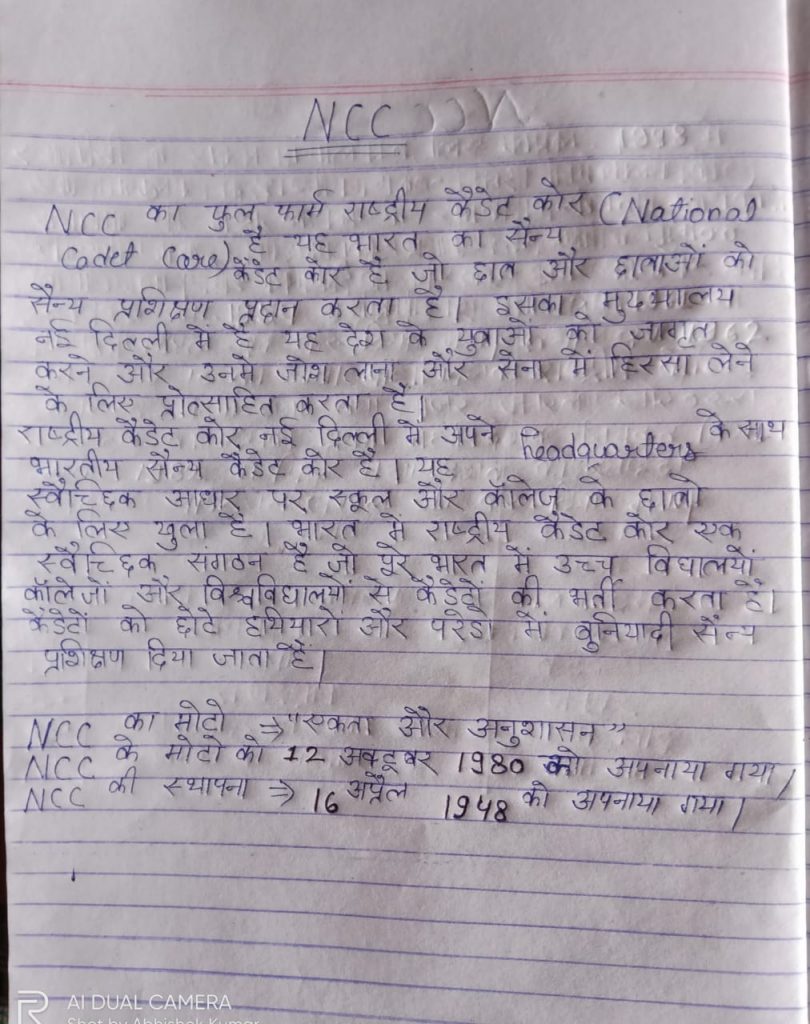 NCC
NCC का फुल फार्म राष्ट्रीय कैडेट कोर (National
Cadet Care) है यह भारत का सैन्य
कैडेट कौर है जो छात और छाताओं को
सैन्य प्रशिक्षण प्रदान करता है। इसका मुख्यालय
नई दिल्ली में है यह देश के युवाओं को जागृत
करने और उनमे जोश लाना और सेना में हिस्सा लेने
के लिए प्रोत्साहित करता है।
राष्ट्रीय कैडेट कोर नई दिल्ली में अपने headquarters के साथ
भारतीय सैन्य कैडेट कोर है। यह
स्वैच्छिक आधार पर स्कूल और कॉलेज के छातो
के लिए खुला है। भारत में राष्ट्रीय कैडेट कोर एक
स्वैच्छिक संगठन है जो पूरे भारत में उच्च विद्यालयों
कॉलेजों और विश्वविद्यालयों से कैडेटों की भर्ती करता है।
कैडेटों को छोटे हथियारो और परेडो में बुनियादी सैन्य
प्रशिक्षण दिया जाता है।
NCC का मोटो ⇒ "एकता और अनुशासन"
NCC के मोटो को 12 अक्टूबर 1980 को अपनाया गया।
NCC की स्थापना ⇒ 16 अप्रैल 1948 को अपनाया गया।
AI DUAL CAMERA
Shot by Abhishek Kumar